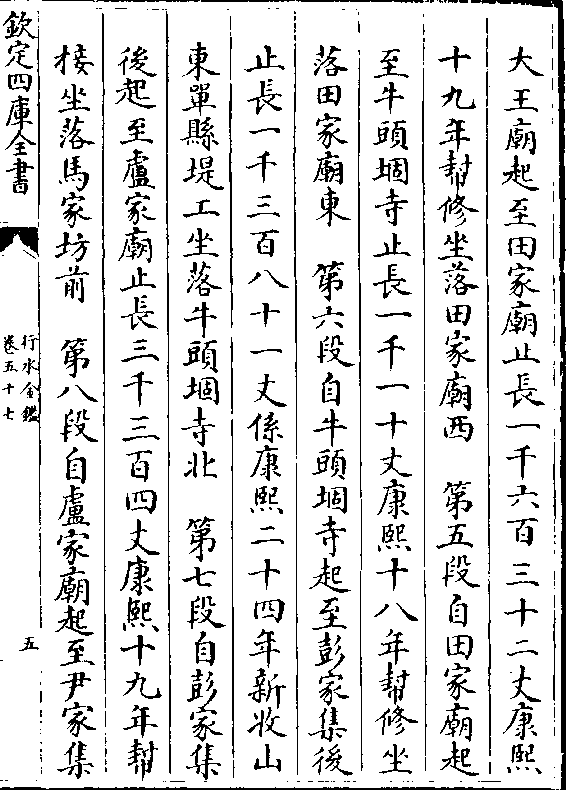 大王廟起至田家廟止長一千六百三十二丈康熙
十九年幫修坐落田家廟西　第五段自田家廟起
至牛頭堌寺止長一千一十丈康熙十八年幫修坐
落田家廟東　第六段自牛頭堌寺起至彭家集後
止長一千三百八十一丈係康熙二十四年新收山
東單縣堤工坐落牛頭堌寺北　第七段自彭家集
後起至盧家廟止長三千三百四丈康熙十九年幫
接坐落馬家坊前　第八段自盧家廟起至尹家集
欽定四庫全書
行水金鑑
卷五十七
五